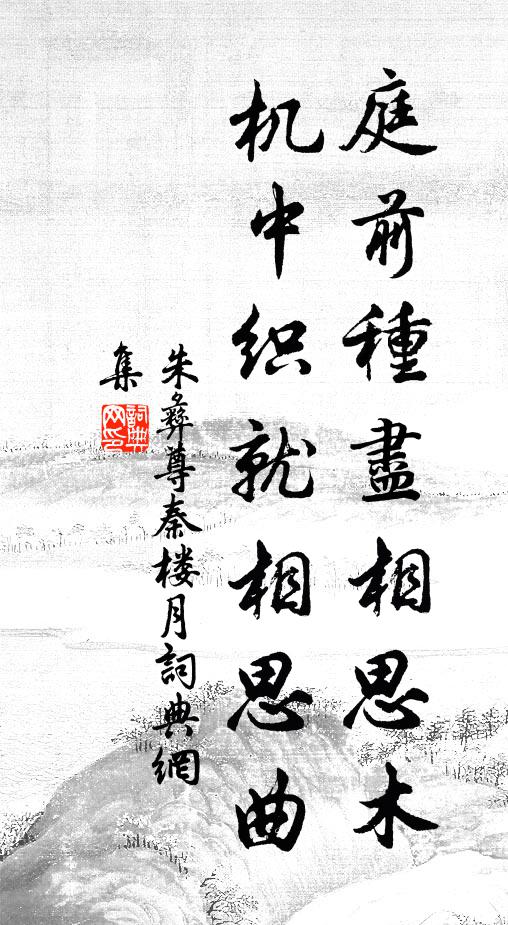 庭前種盡相思木
机中织就相思曲
朱彝尊秦楼月詞典網
集
詞典网印